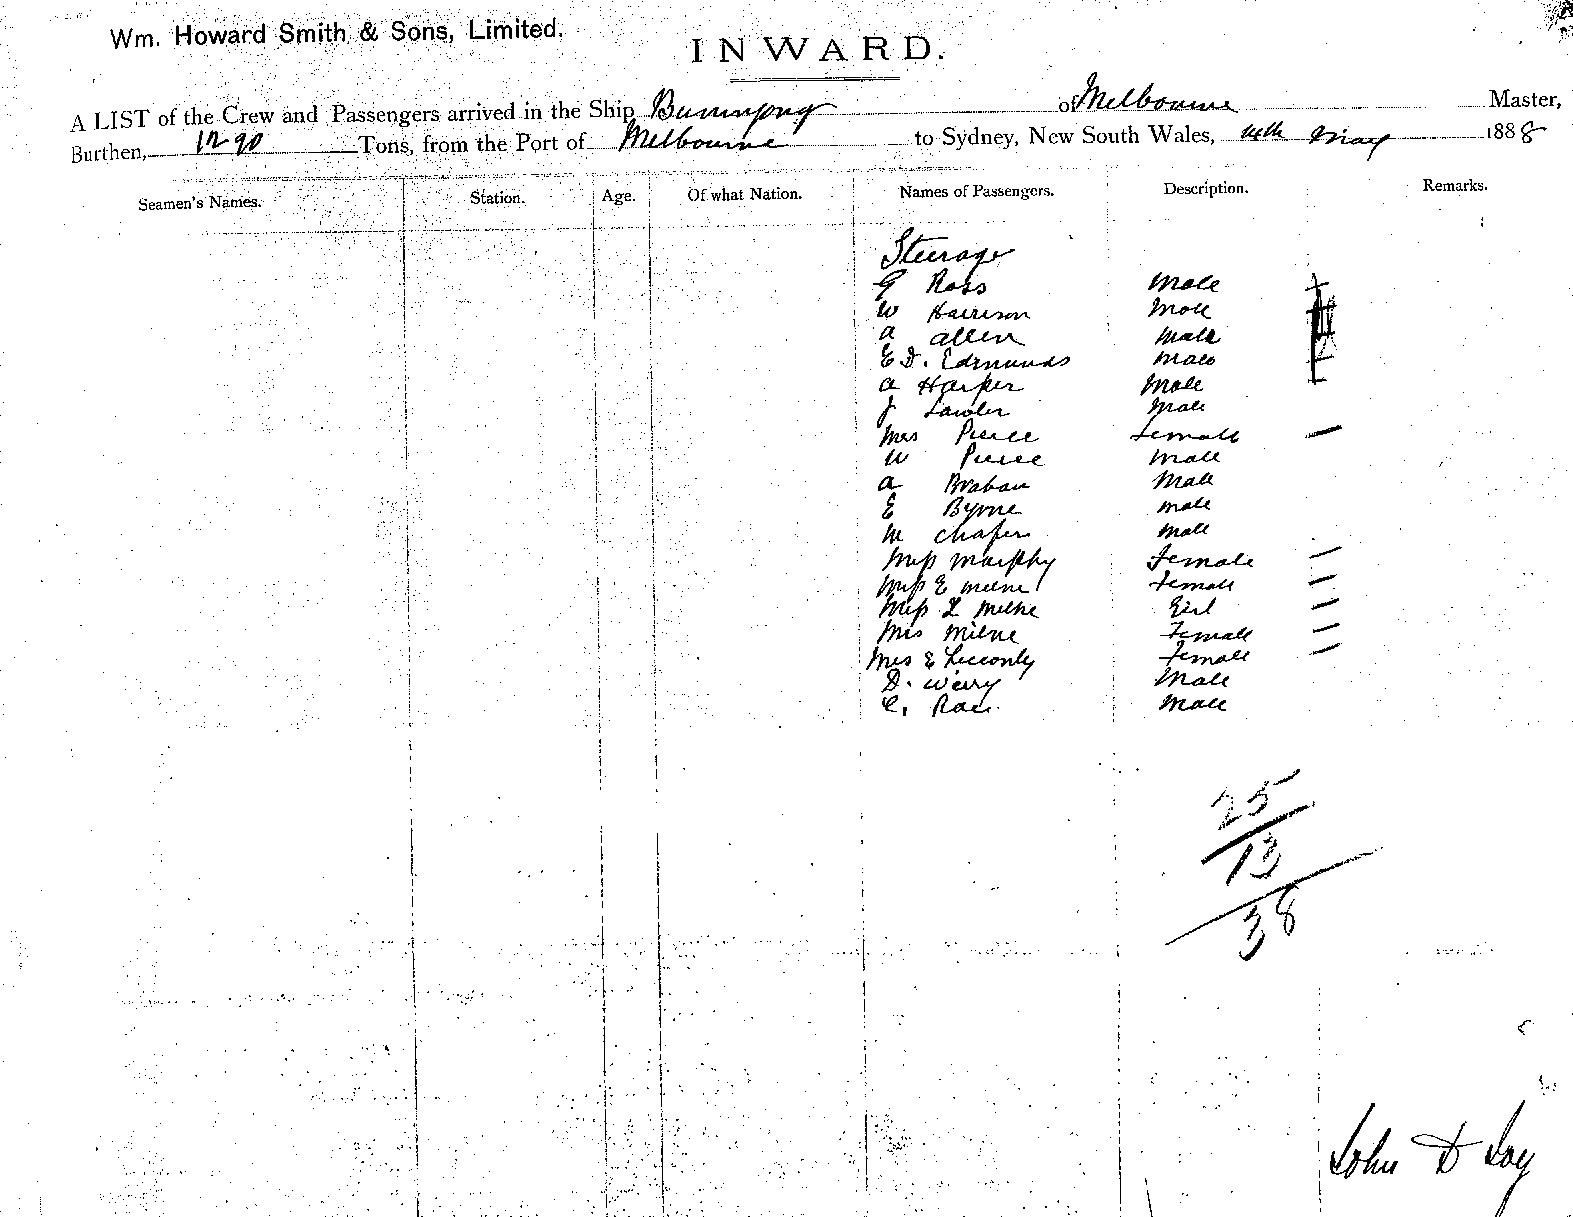 Wm. Howard Smith & Sons, Limited.
INWARD.
A LIST of the Crew and Passengers arrived in the Ship Buninyong of Melbourne Master,
Burthen, 1290 Tons, from the Port of Melbourne to Sydney, New South Wales, 14th May 1888
Seamen's Names. Station. Age. Of what Nation. Names of Passengers. Description. Remarks.
Steerage
G Ross Male
W Harrison Male
A Allen Male
E D. Edmunds Male
A Harper Male
J Lawler Male
Mrs Pierce Female
W Pierce Male
A Braban Male
E Byrne Male
M Chafer Male
Miss Murphy Female
Miss E Milne Female
Miss L Milne Girl
Mrs Milne Female
Mrs E Female
D. Weiry Male
C. Rae Male
25
13
38
John D Loy